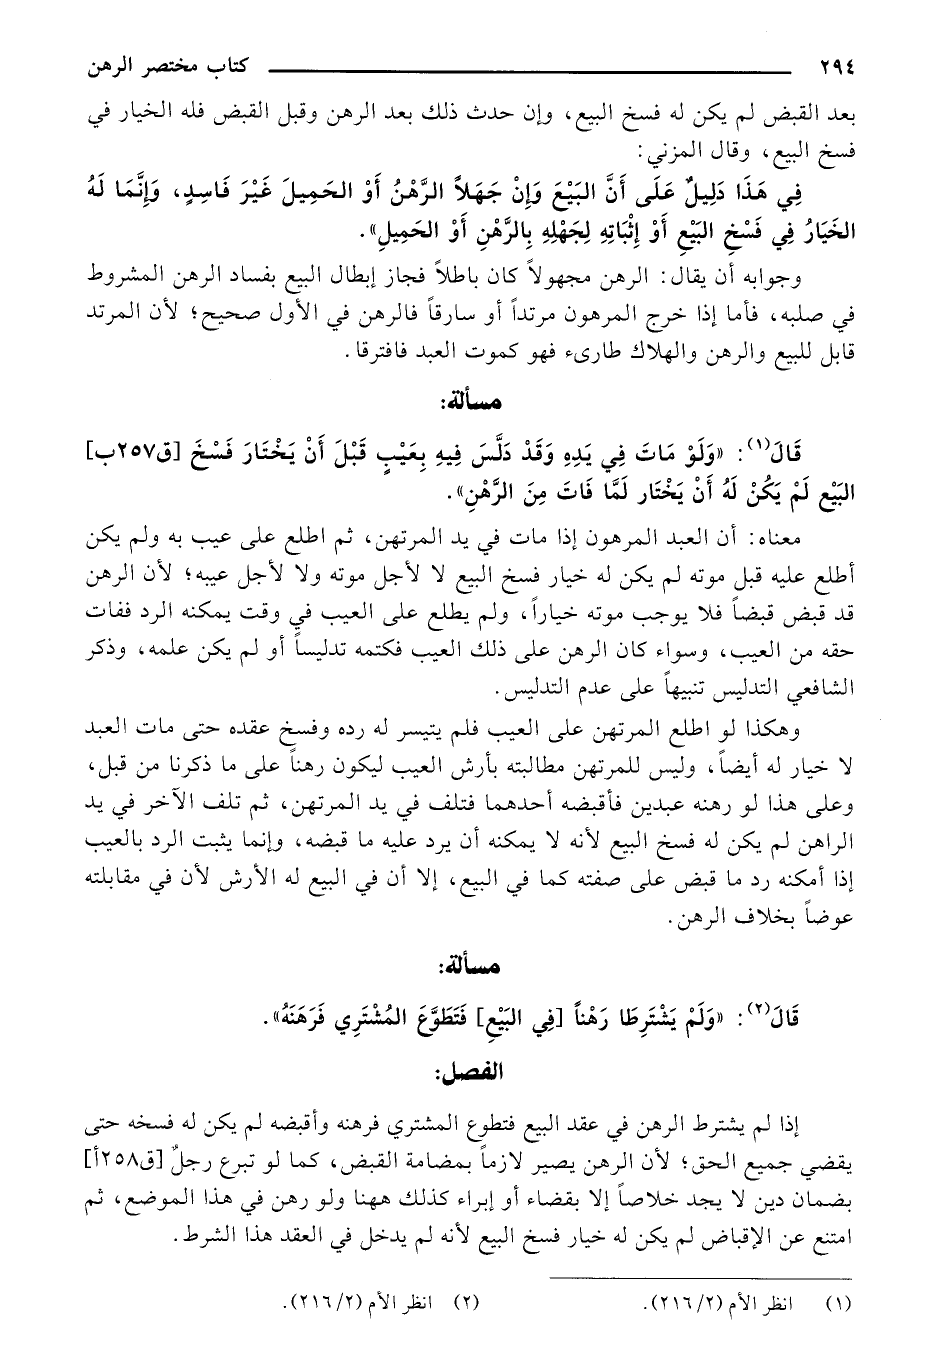 ٢٩٤ كتاب مختصر الرهن
بعد القبض لم يكن له فسخ البيع، وإن حدث ذلك بعد الرهن وقبل القبض فله الخيار في
فسخ البيع، وقال المزني:
فِي هَذَا دَلِيلٌ عَلَى أَنَّ البَيْعَ وَإِنْ جَهَلاَ الرَّهْنُ أَوْ الحَمِيلَ غَيْرَ فَاسِدٍ، وَإِنَّمَا لَهُ
الخَيَارُ فِي فَسْخِ البَيْعِ أَوْ إِثْبَاتِهِ لِجَهْلِهِ بِالرَّهْنِ أَوْ الحَمِيلِ».
وجوابه أن يقال: الرهن مجهولاً كان باطلاً فجاز إبطال البيع بفساد الرهن المشروط
في صلبه، فأما إذا خرج المرهون مرتداً أو سارقاً فالرهن في الأول صحيح؛ لأن المرتد
قابل للبيع والرهن والهلاك طارىء فهو كموت العبد فافترقا.
مسألة:
قَالَ(١): «وَلَوْ مَاتَ فِي يَدِهِ وَقَدْ دَلَّسَ فِيهِ بِعَيْبٍ قَبْلَ أَنْ يَخْتَارَ فَسْخَ [ق٢٥٧ب]
البَيْعِ لَمْ يَكُنْ لَهُ أَنْ يَخْتَار لَمَّا فَاتَ مِنَ الرَّهْنِ».
معناه: أن العبد المرهون إذا مات في يد المرتهن، ثم اطلع على عيب به ولم يكن
أطلع عليه قبل موته لم يكن له خيار فسخ البيع لا لأجل موته ولا لأجل عيبه؛ لأن الرهن
قد قبض قبضاً فلا يوجب موته خياراً، ولم يطلع على العيب في وقت يمكنه الرد ففات
حقه من العيب، وسواء كان الرهن على ذلك العيب فكتمه تدليساً أو لم يكن علمه، وذكر
الشافعي التدليس تنبيهاً على عدم التدليس.
وهكذا لو اطلع المرتهن على العيب فلم يتيسر له رده وفسخ عقده حتى مات العبد
لا خيار له أيضاً، وليس للمرتهن مطالبته بأرش العيب ليكون رهناً على ما ذكرنا من قبل،
وعلى هذا لو رهنه عبدين فأقبضه أحدهما فتلف في يد المرتهن، ثم تلف الآخر في يد
الراهن لم يكن له فسخ البيع لأنه لا يمكنه أن يرد عليه ما قبضه، وإنما يثبت الرد بالعيب
إذا أمكنه رد ما قبض على صفته كما في البيع، إلا أن في البيع له الأرش لأن في مقابلته
عوضاً بخلاف الرهن.
مسألة:
قَالَ(٢): «وَلَمْ يَشْتَرِطَا رَهْناً [فِي البَيْعِ] فَتَطَوَّعَ المُشْتَرِي فَرَهَنَهُ».
الفصل:
إذا لم يشترط الرهن في عقد البيع فتطوع المشتري فرهنه وأقبضه لم يكن له فسخه حتى
يقضي جميع الحق؛ لأن الرهن يصير لازماً بمضامة القبض، كما لو تبرع رجلٌ [ق٢٥٨أ]
بضمان دين لا يجد خلاصاً إلا بقضاء أو إبراء كذلك ههنا ولو رهن في هذا الموضع، ثم
امتنع عن الإقباض لم يكن له خيار فسخ البيع لأنه لم يدخل في العقد هذا الشرط.
(١) انظر الأم (٢/ ٢١٦). (٢) انظر الأم (٢/ ٢١٦).